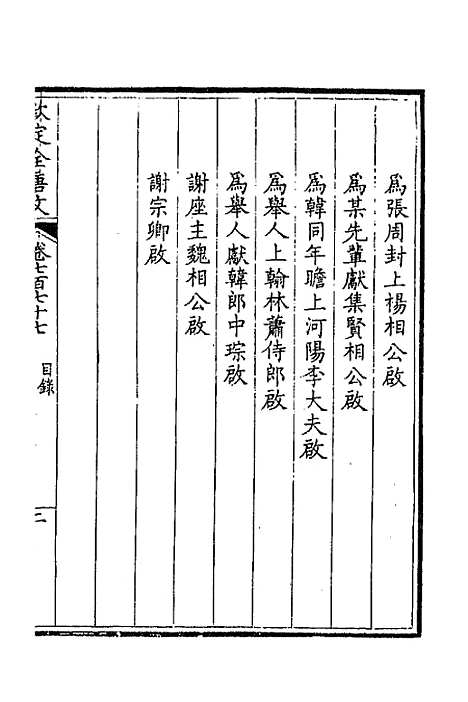 為張周封上楊相公啟
為某先輩獻集賢相公啟
為韓同年瞻上河陽李大夫啟
為舉人上翰林蕭侍郎啟
為舉人獻韓郎中琮啟
謝座主魏相公啟
謝宗卿啟
欽定全唐文 卷七百七十七 目錄 二